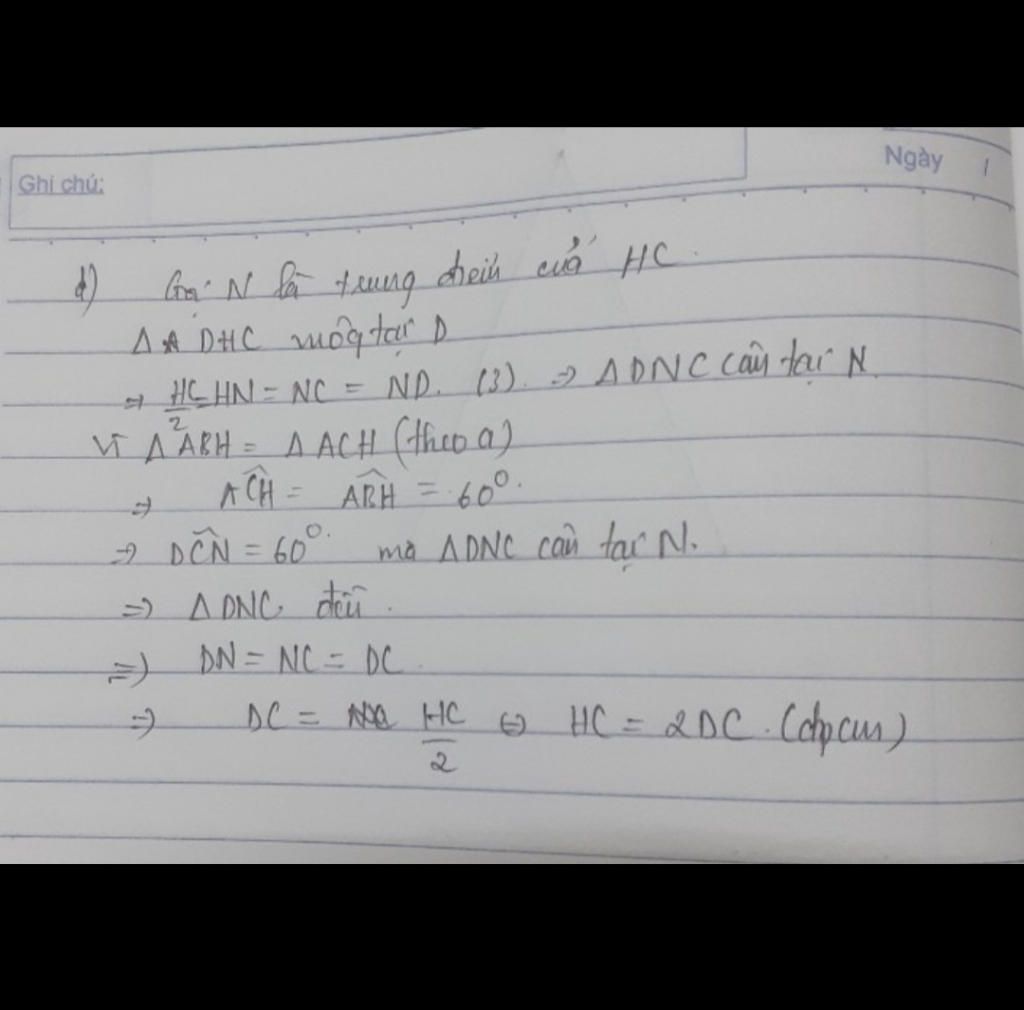 Ghi chú:
Ngày /
d) Gọi N là trung điểm của HC.
Δ DHC vuông tại D
⇒ HC/2 = HN = NC = ND. (3). ⇒ ΔDNC cân tại N
Vì Δ ABH = Δ ACH (theo a)
⇒ \widehat{ACH} = \widehat{ABH} = 60°.
⇒ \widehat{DCN} = 60°. mà ΔDNC cân tại N.
⇒ Δ DNC đều.
⇒ DN = NC = DC.
⇒ DC = HC/2 ⇔ HC = 2DC. (đpcm)